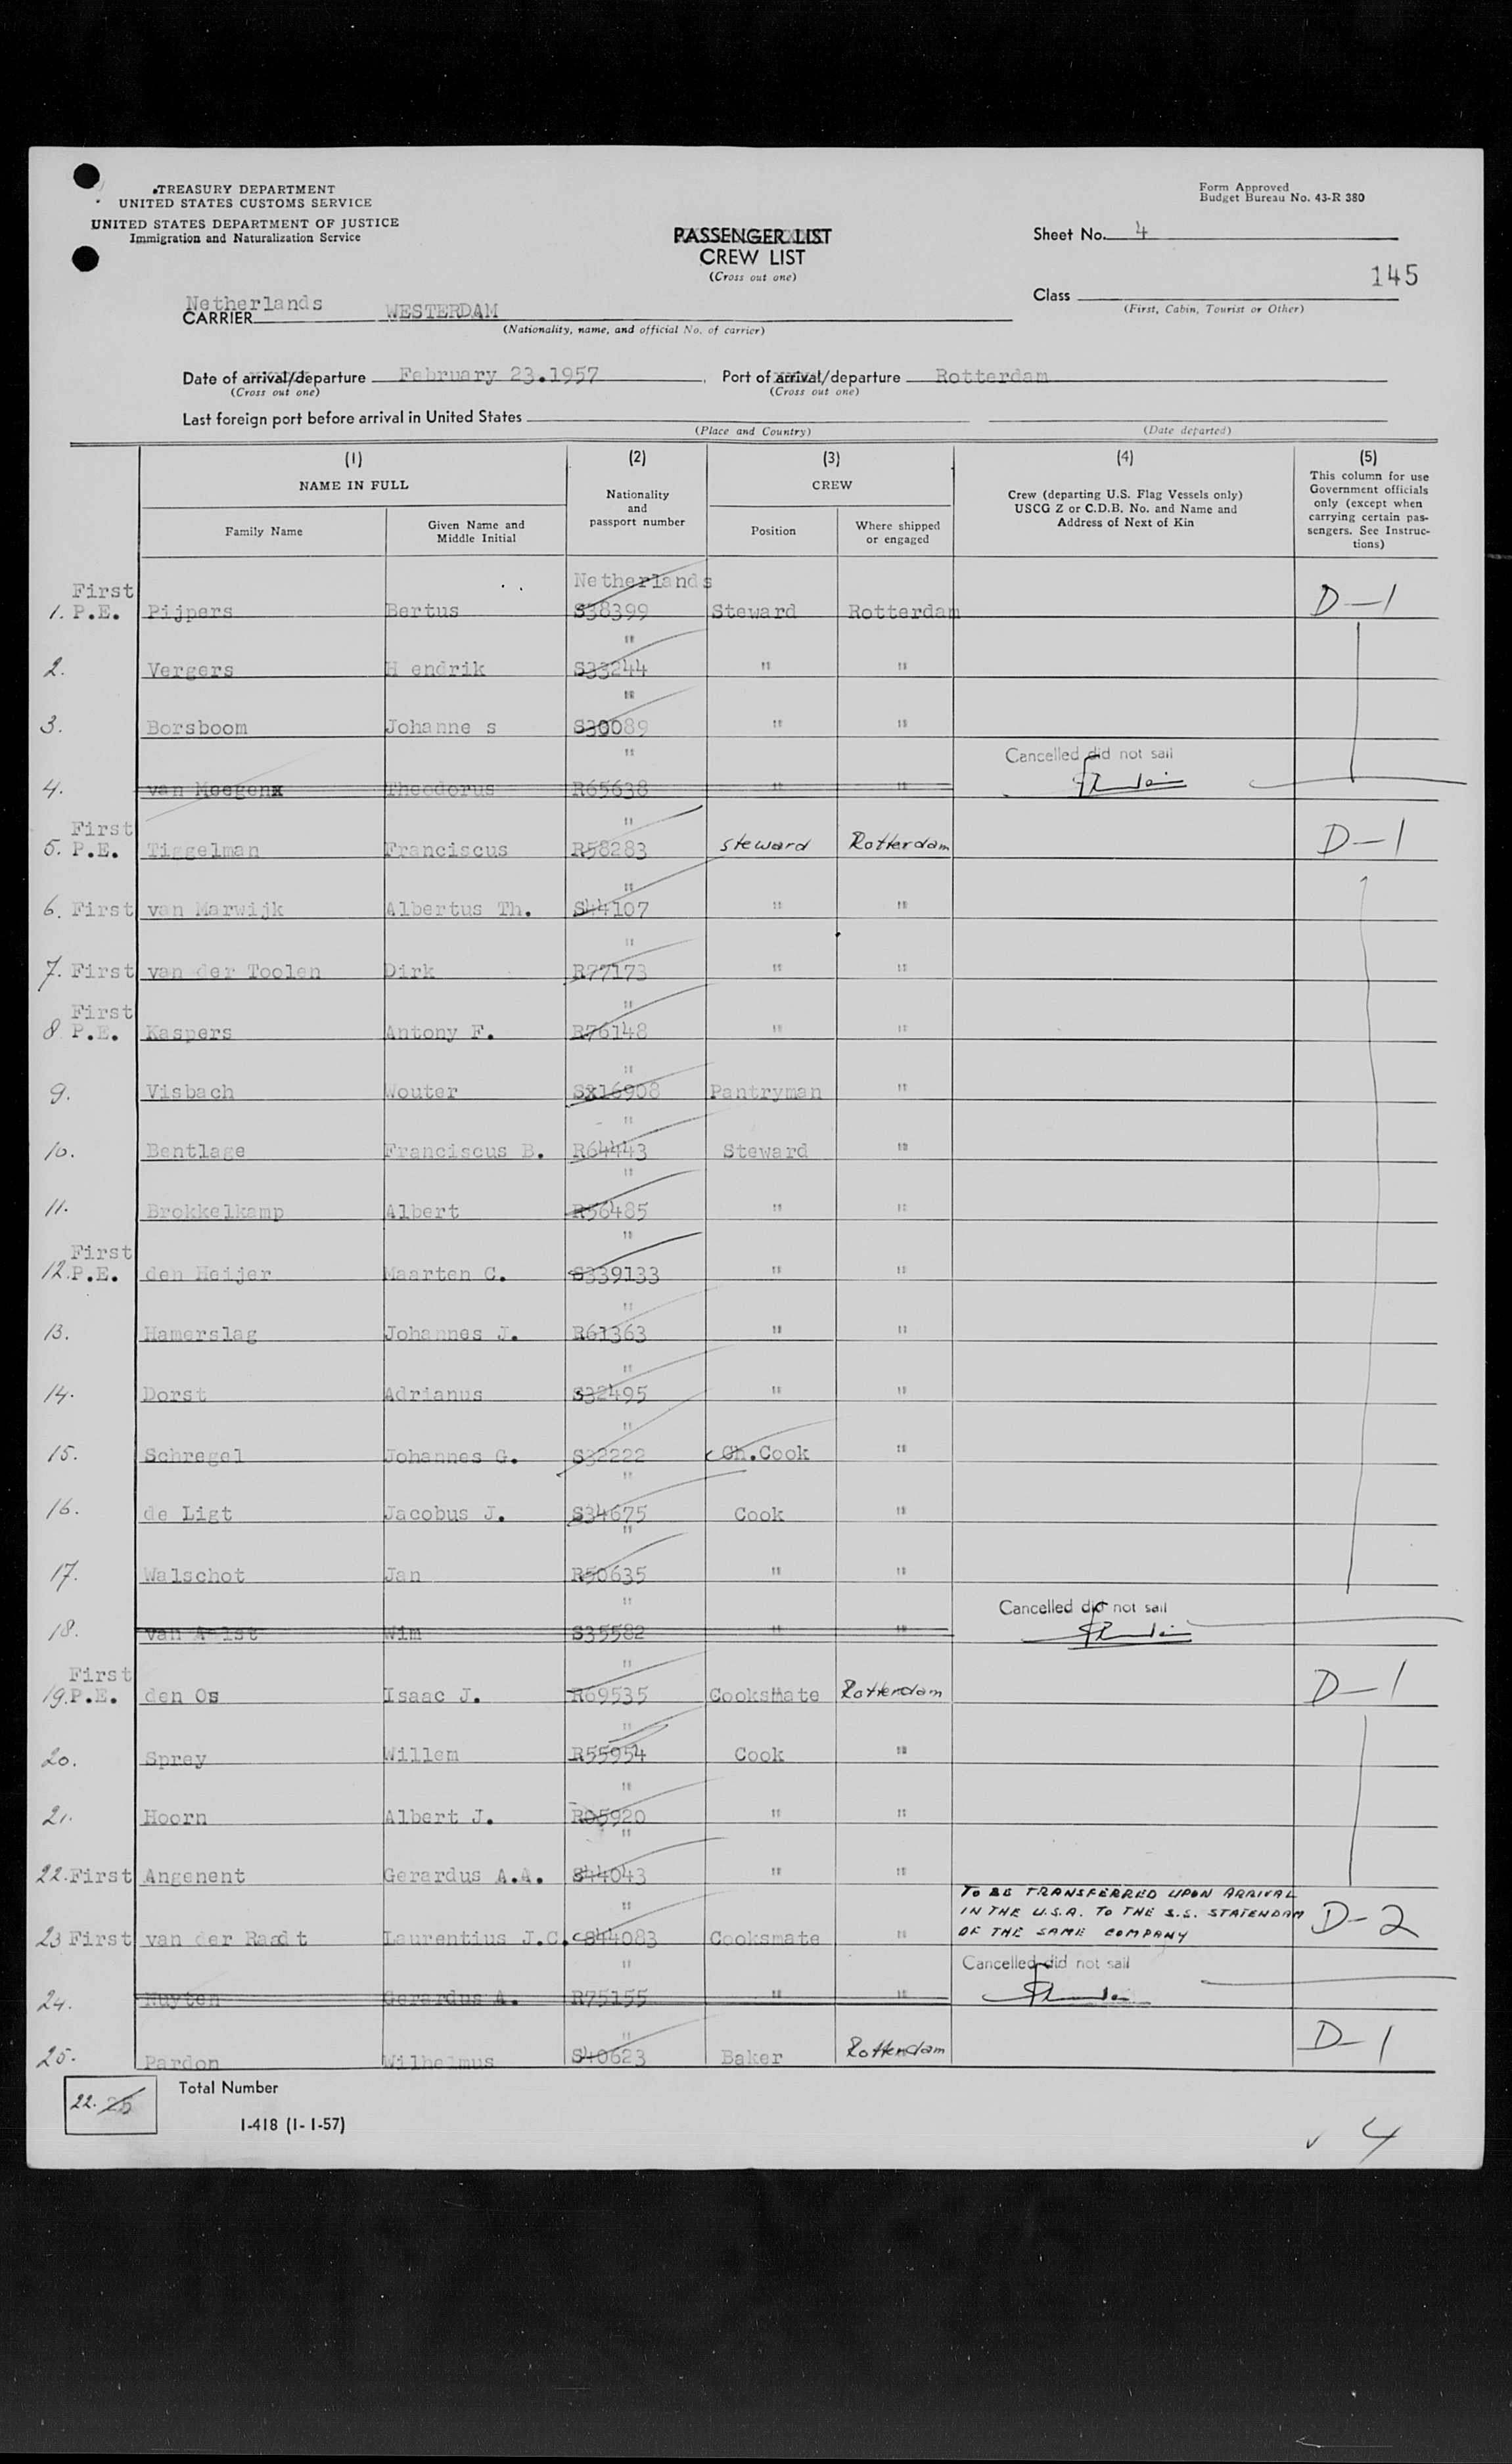 TREASURY DEPARTMENT
UNITED STATES CUSTOMS SERVICE
UNITED STATES DEPARTMENT OF JUSTICE
Immigration and Naturalization Service
Form Approved
Budget Bureau No. 43-R 380
PASSENGER LIST
CREW LIST
(Cross out one)
Sheet No. 4
145
Class
(First, Cabin, Tourist or Other)
Netherlands
CARRIER WESTERDAM
(Nationality, name, and official No. of carrier)
Date of arrival/departure February 23.1957 Port of arrival/departure Rotterdam
(Cross out one) (Cross out one)
Last foreign port before arrival in United States
(Place and Country) (Date departed)
(1) (2) (3) (4) (5)
NAME IN FULL Nationality and passport number CREW Crew (departing U.S. Flag Vessels only) USCG Z or C.D.B. No. and Name and Address of Next of Kin This column for use Government officials only (except when carrying certain passengers. See Instructions)
Family Name Given Name and Middle Initial Position Where shipped or engaged
First Netherlands
1. P.E. Pijpers Bertus S38399 Steward Rotterdam D-1
"
2. Vergers H endrik S33244 " "
"
3. Borsboom Johanne s S30089 " "
" Cancelled did not sail
4. van Meegenx Theodorus R65638 " "
First "
5. P.E. Tiggelman Franciscus R58283 steward Rotterdam D-1
"
6. First van Marwijk Albertus Th. S44107 " "
"
7. First van der Toolen Dirk R77173 " "
First "
8 P.E. Kaspers Antony F. R76148 " "
"
9. Visbach Wouter Sx16908 Pantryman "
"
10. Bentlage Franciscus B. R64443 Steward "
"
11. Brokkelkamp Albert R56485 " "
First "
12. P.E. den Heijer Maarten C. S339133 " "
"
13. Hamerslag Johannes J. R61363 " "
"
14. Dorst Adrianus S32495 " "
"
15. Schregel Johannes G. S32222 Ch.Cook "
"
16. de Ligt Jacobus J. S34675 Cook "
"
17. Walschot Jan R50635 " "
" Cancelled did not sail
18. van Aelst Wim S35582 " "
First "
19. P.E. den Os Isaac J. R69535 Cooksmate Rotterdam D-1
"
20. Sprey Willem R55954 Cook "
"
21. Hoorn Albert J. R05920 " "
"
22. First Angenent Gerardus A.A. S44043 " "
" TO BE TRANSFERRED UPON ARRIVAL
IN THE U.S.A. TO THE S.S. STATENDAM
23 First van der Raadt Laurentius J.C. S44083 Cooksmate " OF THE SAME COMPANY D-2
" Cancelled did not sail
24. Nuyten Gerardus A. R75155 " "
"
25. Pardon Wilhelmus S40623 Baker Rotterdam D-1
22. 25 Total Number
I-418 (1-1-57)
4